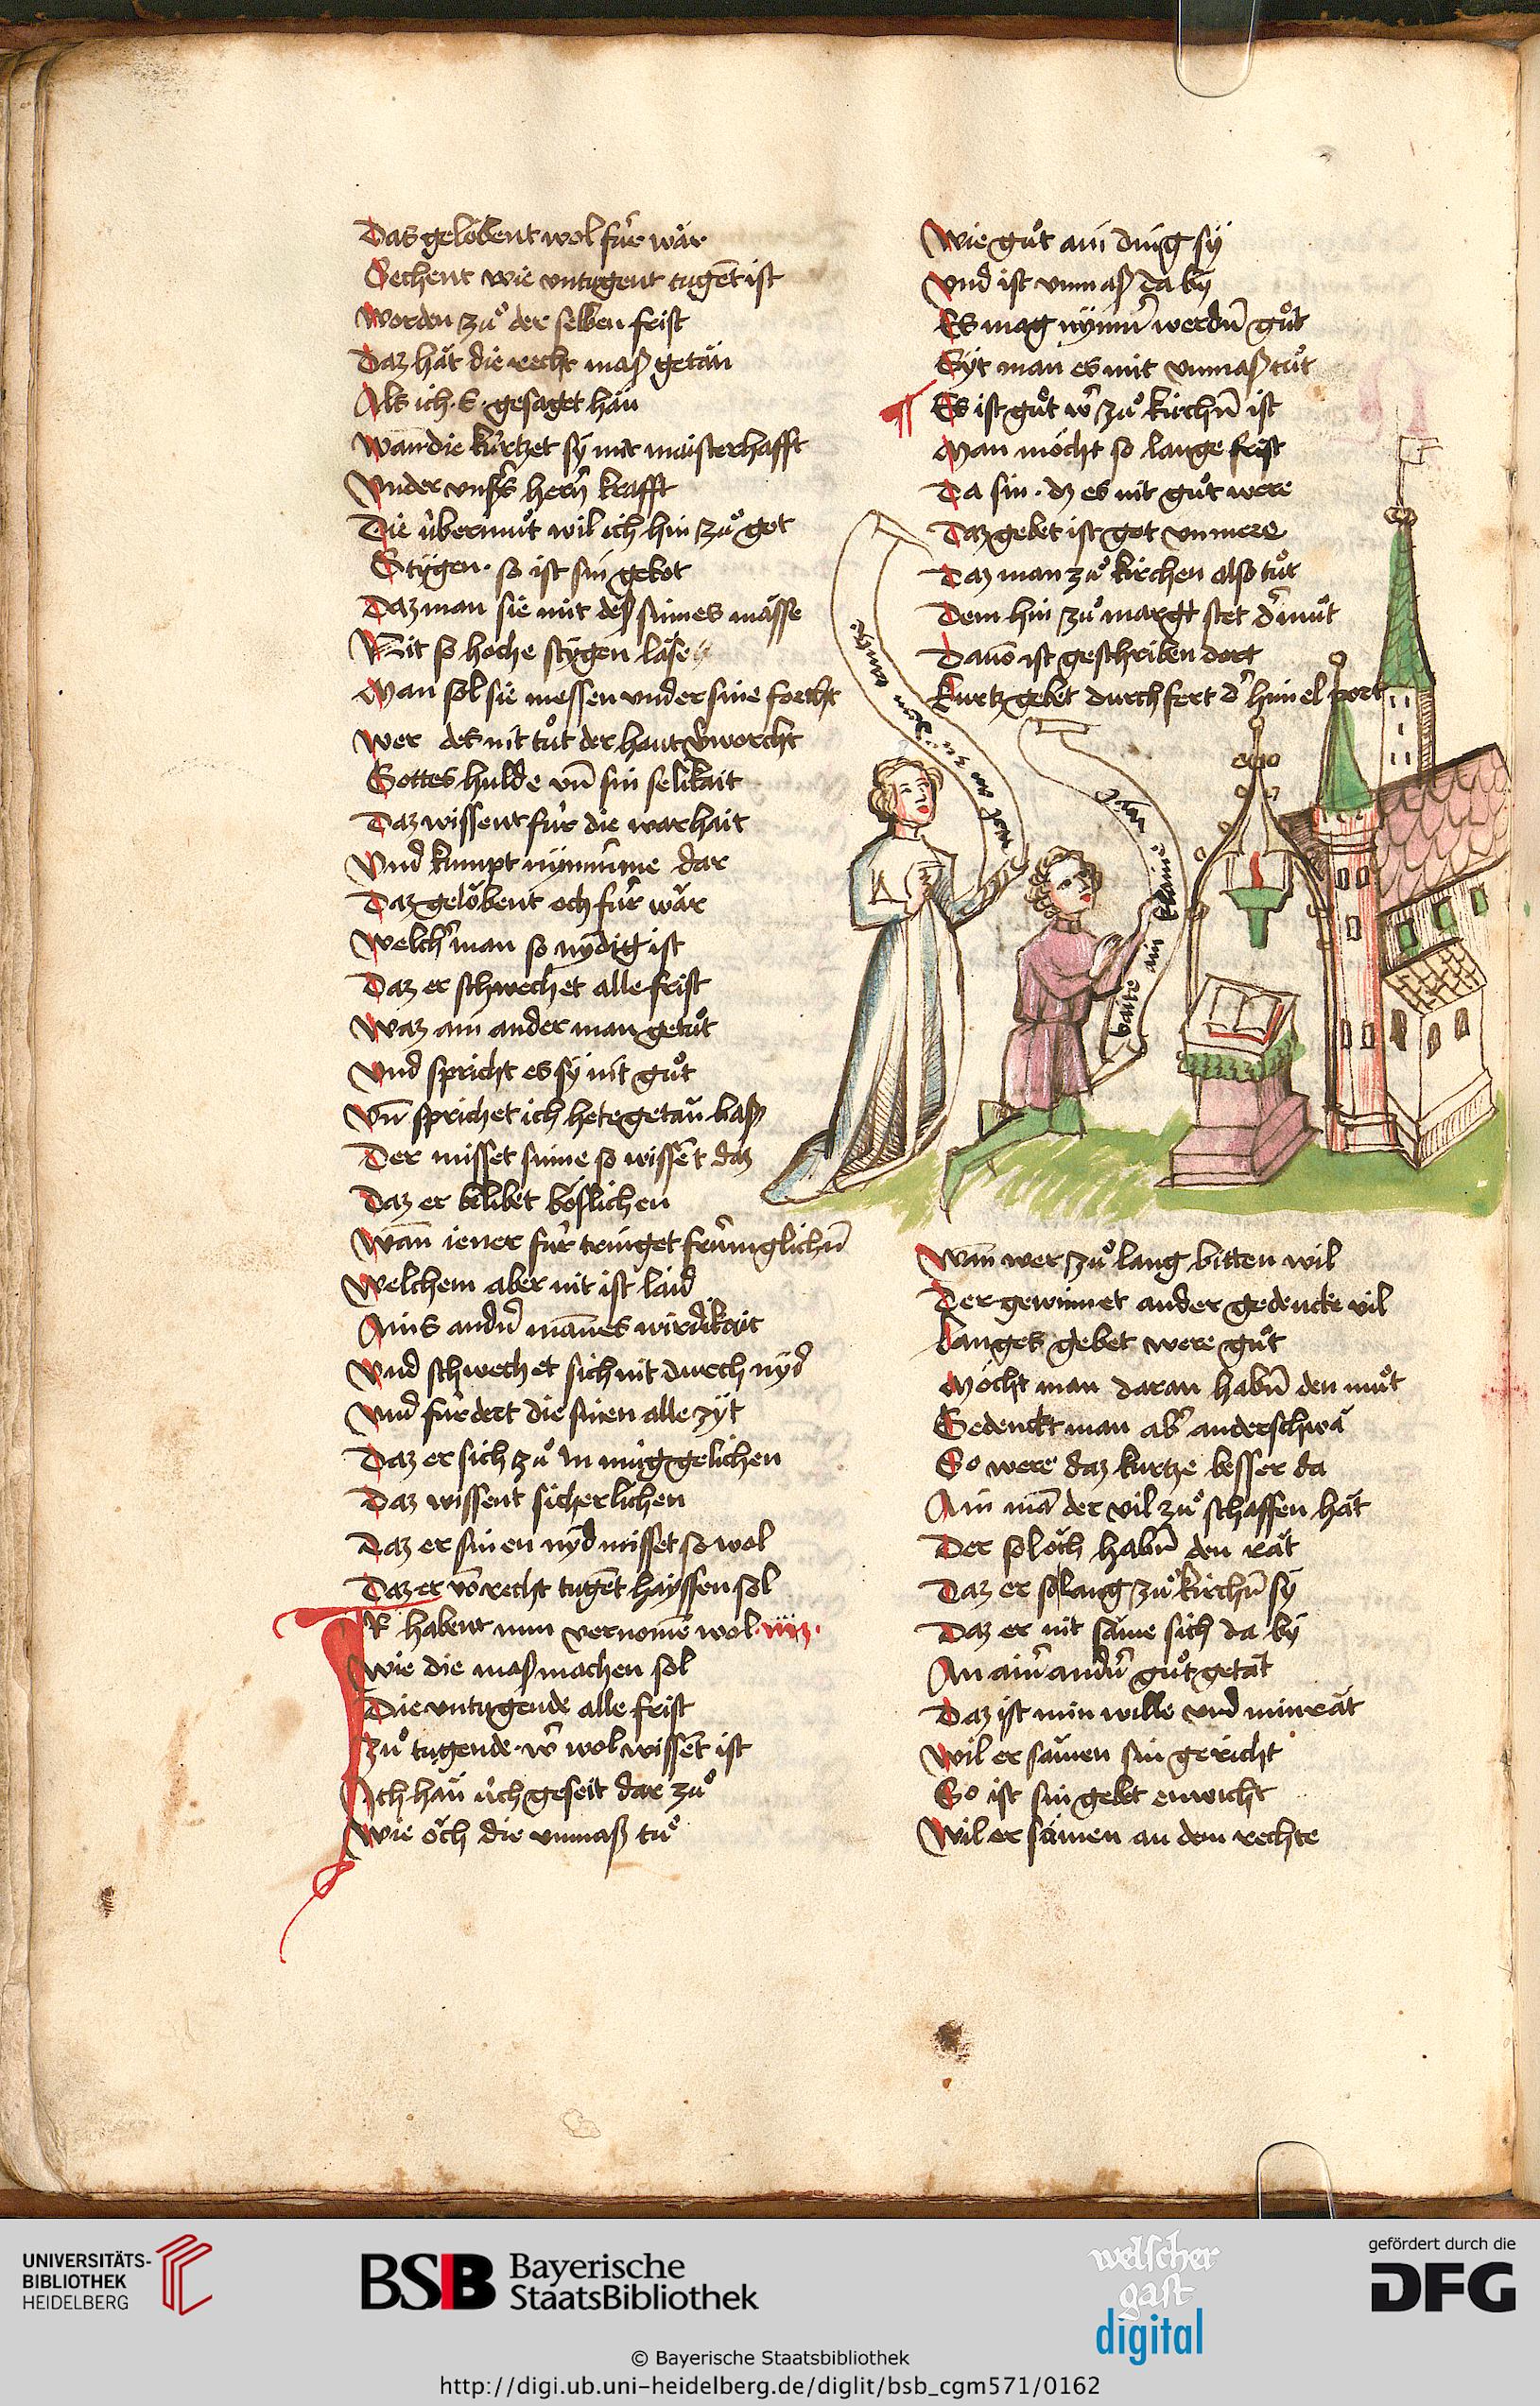 Das gelöbent wol für wär
Sechent wie vntugent tugēt ist
Worden zuͦ der selben frist
Daz hät die recht maß getän
Als ich e gesaget hän
Wann die kürtzet sy mit maisterhafft
Vnder vnsers herñ krafft
Die übermuͦt wil ich hin zuͦ got
Stygen · so ist sin gebot
Daz man sie mit deß sinnes mässe
Nit so hoche stÿgen läse
Man sol sie messen vnder sine forcht
Wer des nit tuͦt der haut v̄worcht
Gottes hulde vn̄ sin selikait
Daz wissent für die warhait
Vnd kumpt nÿmm̄me dar
Daz gelöbent och für wär
Welch̄ man so nÿdig ist
Daz er schwechet alle frist
Waz ain ander man getuͦt
Vnd spricht es sÿ nit guͦt
Vn̄ sprichet ich hete getän baß
Der misset sinne so wissēt daz
Daz er belibet böslichen
Wan̄ iener für tringet frümglichn̄
Welchem aber nit ist laid
Ains andn̄ mānes wirdikait
Vnd schwechet sich nit durch nÿd
Vnd fürdert die sinen alle zÿt
Daz er sich zuͦ Im müg gelichen
Daz wissent sicherlichen
Daz er sinen nÿd misset so wol
Daz er vō recht tugēt hayssen sol
IR habent nun vernomē wol
Wie die maß machen sol
Die vntugende alle frist
Zuͦ tugende · w̄ wol wissēt ist
Ich hän üch geseit dar zuͦ
Wie öch die vnmaß tuͦ
Wie guͦt ain ding sÿ
Vnd ist vnmaß da bÿ
Es mag nÿmm̄ werdn̄ guͦt
Syt man es mit vnmaß tuͦt
¶ Es ist guͦt w̄ zuͦ kirchn̄ ist
Man möcht so lange frist
Da sin · dz es nit guͦt were
Daz gebet ist got vnmere
Daz man zuͦ kirchen also tuͦt
Dem hin zuͦ margtt stet d̄ muͦt
Dauō ist geschriben dort
Kurtz gebet durch fert d̄ himel port
bätte ain klaine
Wan̄ wer zuͦ lang bitten wil
Der gewinnet ander gedencke vil
Langes gebet were guͦt
Möcht man daran habn̄ den muͦt
Gedenckt man ab̄ anderschwä
So were daz kurtze besser da
Ain mā der vil zuͦ schaffen hät
Der sol öch habn̄ den rät
Daz er so lang zuͦ kirchn̄ sÿ
Daz er nit säme sich da bÿ
An ain̄ andn̄ guͦt getät
Daz ist min wille vnd min rät
Wil er sämen sin gericht
So ist sin gebet enwicht
Wil er sämen an dem rechte
UNIVERSITÄTS-
BIBLIOTHEK
HEIDELBERG
BSB Bayerische
StaatsBibliothek
welscher
gast
digital
gefördert durch die
DFG
© Bayerische Staatsbibliothek
http://digi.ub.uni-heidelberg.de/diglit/bsb_cgm571/0162